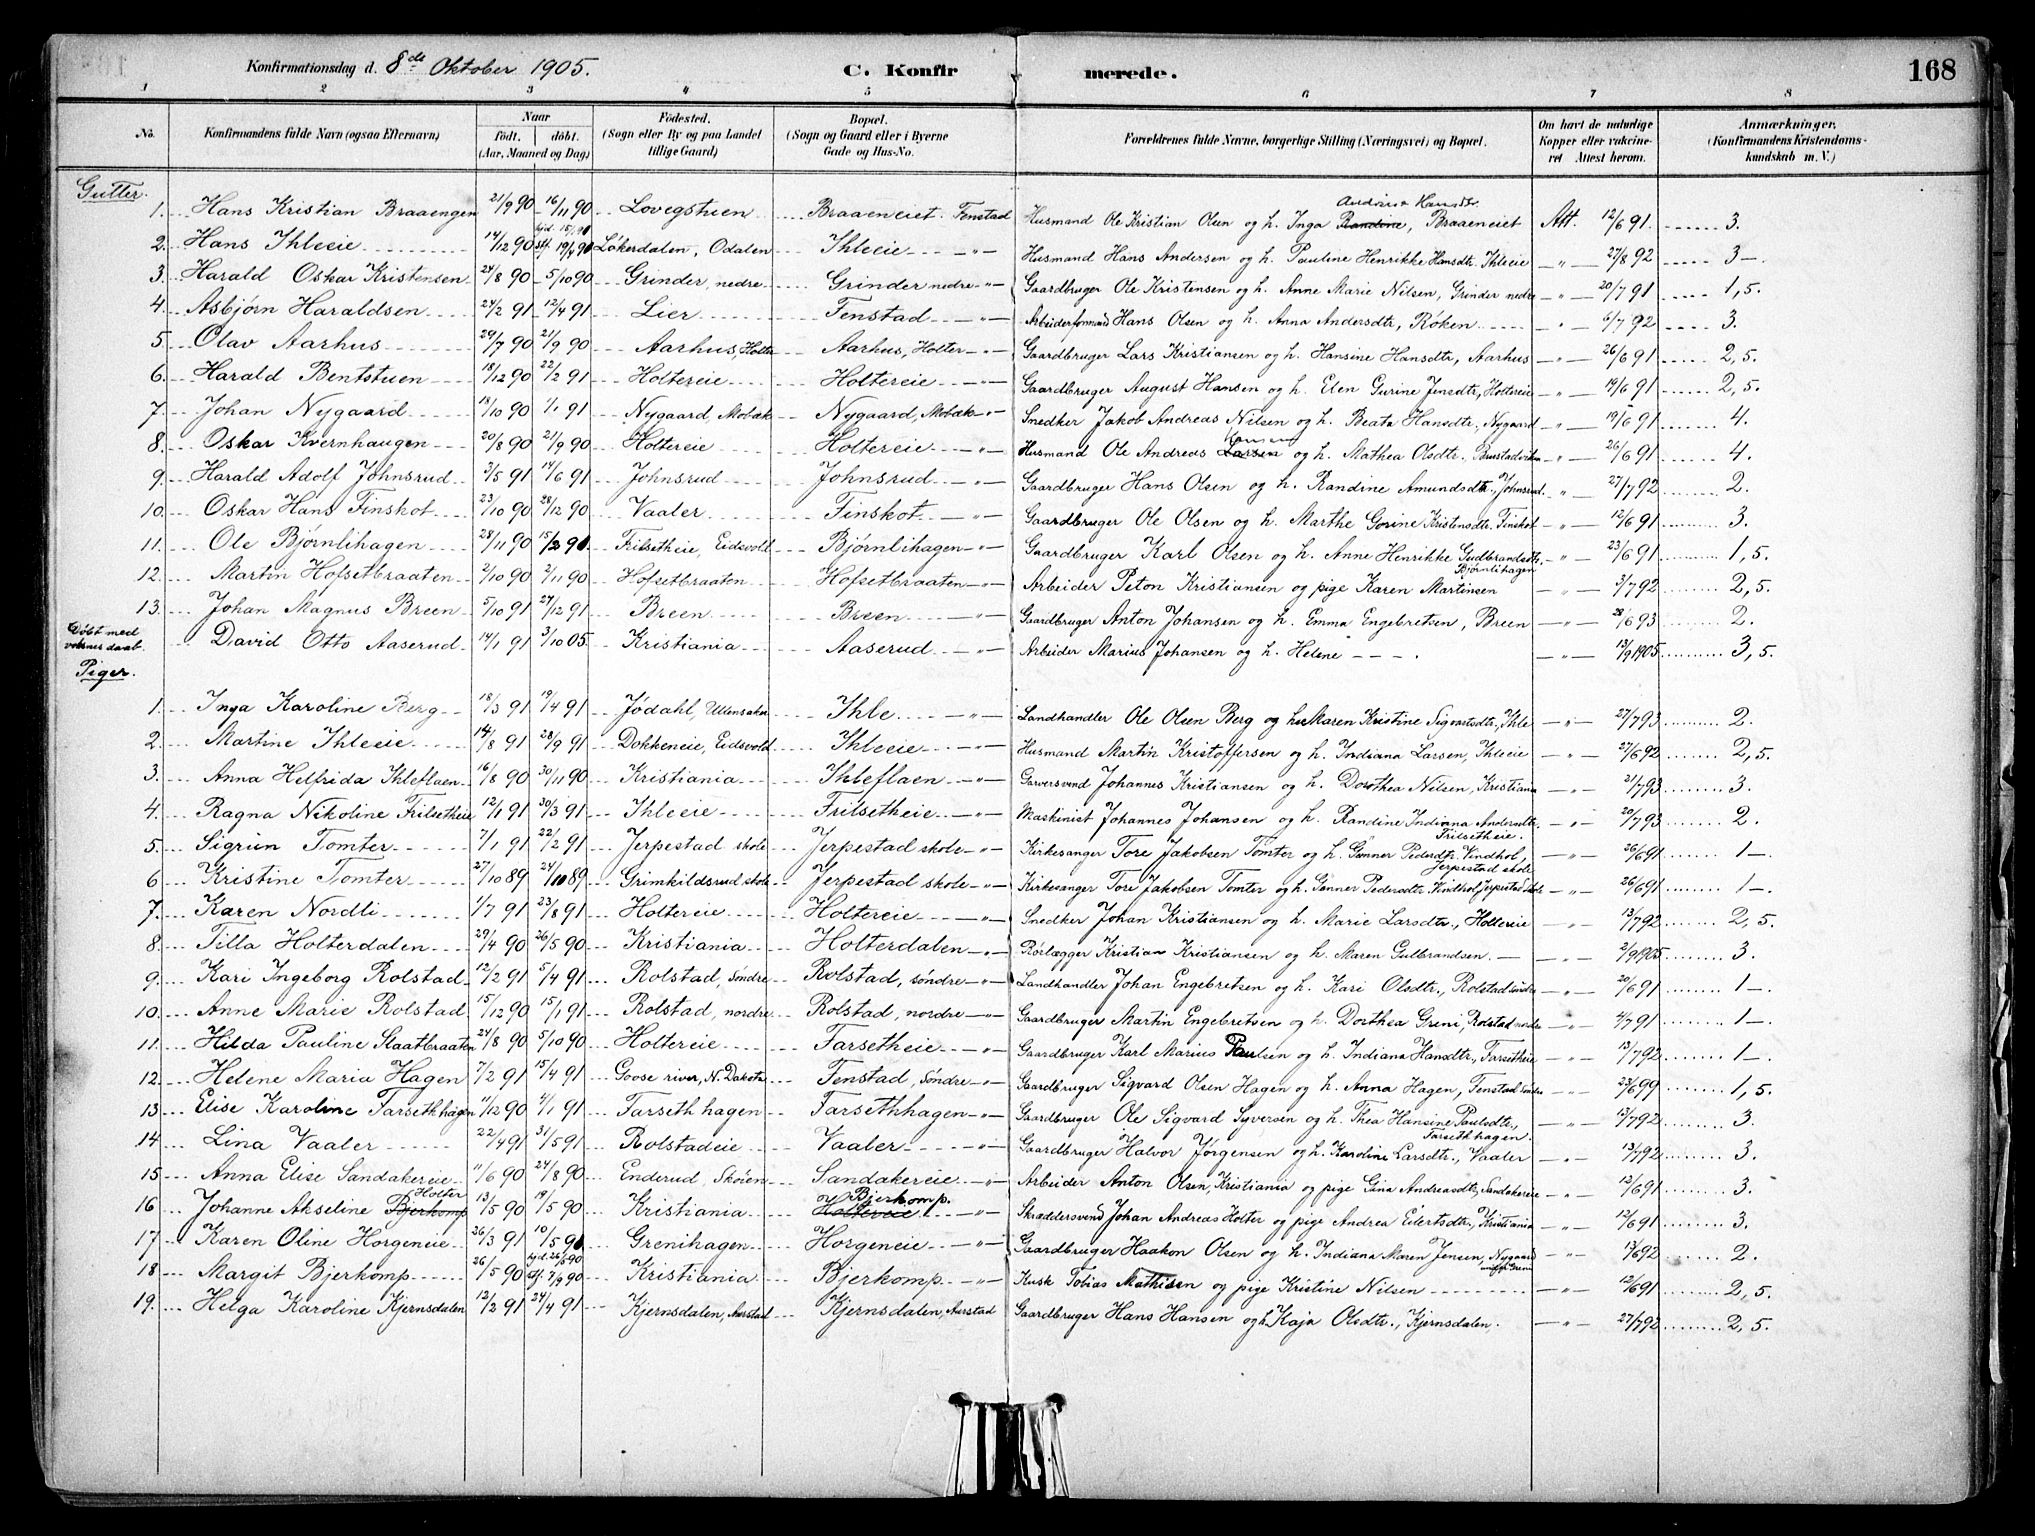 Konfirmationsdag d. 8de Oktober 1905. C. Konfirmerede. 168
1 2 3 4 5 6 7 8
No. Konfirmandens fulde Navn (ogsaa Efternavn) Naar födt. döbt. (Aar, Maaned og Dag) Födested. (Sogn eller By og paa Landet tillige Gaard) Bopæl. (Sogn og Gaard eller i Byerne Gade og Hus-No. Forældrenes fulde Navne, borgerlige Stilling (Næringsvei) og Bopæl. Om havt de naturlige Kopper eller vakcineret Attest herom. Anmærkninger, (Konfirmandens Kristendomskundskab m. V.)
Gutter.
1. Hans Kristian Braaengen 21/9 90 16/11 90 Lovegstuen Braaeneiet Fenstad Husmand Ole Kristian Olsen og h. Inga Randine Andrine Hansdtr, Braaeneiet Att. 12/6 91. 3.
2. Hans Ihleeie 14/12 90 hjd. 15/1 91 stf. 19/4 91 Løkerdalen, Odalen Ihleeie -"- Husmand Hans Andersen og h. Pauline Henrikke Hansdtr, Ihleeie -"- 27/8 92 3-.
3. Harald Oskar Kristensen 24/8 90 5/10 90 Grinder, nedre Grinder nedre -"- Gaardbruger Ole Kristensen og h. Anne Marie Nilsen, Grinder nedre -"- 20/7 91 1,5.
4. Asbjørn Haraldsen 24/2 91 12/4 91 Lier Fenstad -"- Arbeiderformand Hans Olsen og h. Anna Andersdtr, Røken -"- 6/7 92 3.
5. Olav Aarhus 29/7 90 21/9 90 Aarhus, Holter Aarhus, Holter -"- Gaardbruger Lars Kristiansen og h. Hansine Hansdtr, Aarhus -"- 26/6 91 2,5.
6. Harald Bentstuen 18/12 90 22/2 91 Holtereie Holtereie -"- Gaardbruger August Hansen og h. Elen Gurine Jensdtr, Holtereie -"- 19/6 91 2,5.
7. Johan Nygaard 18/10 90 1/1 91 Nygaard, Mobæk Nygaard, Mobæk -"- Snedker Jakob Andreas Nilsen og h. Beata Hansdtr, Nygaard -"- 19/6 91 4.
8. Oskar Kvernhaugen 20/8 90 21/9 90 Holtereie Holtereie -"- Husmand Ole Andreas Larsen Hansen og h. Mathea Olsdtr. Brustadviken -"- 26/6 91 4.
9. Harald Adolf Johnsrud 3/5 91 14/6 91 Johnsrud Johnsrud -"- Gaardbruger Hans Olsen og h. Randine Amundsdtr, Johnsrud -"- 27/7 92 2.
10. Oskar Hans Finskot 23/10 90 28/12 90 Vaaler Finskot -"- Gaardbruger Ole Olsen og h. Marthe Gorine Kristensdtr. Finskot -"- 12/6 91 3.
11. Ole Bjørnlihagen 28/11 90 15/2 91 Frilsetheie, Eidsvold Bjørnlihagen -"- Gaardbruger Karl Olsen og h. Anne Henrikke Gudbrandsdtr. Bjørnlihagen -"- 23/6 91 1,5.
12. Martin Hofsetbraaten 2/10 90 2/11 90 Hofsetbraaten Hofsetbraaten -"- Arbeider Peton Kristiansen og pige Karen Martinsen -"- 3/7 92 2,5.
13. Johan Magnus Breen 5/10 91 27/12 91 Breen Breen -"- Gaardbruger Anton Johansen og h. Emma Engebretsen, Breen -"- 28/6 93 2.
Døbt med voksnes daab. David Otto Aaserud 14/1 91 3/10 05 Kristiania Aaserud -"- Arbeider Marius Johansen og h. Helene -"- 13/9 1905 3,5.
Piger.
1. Inga Karoline Berg 18/3 91 19/4 91 Jødahl, Ullensaker Ihle -"- Landhandler Ole Olsen Berg og hu Maren Kristine Sigvartsdtr, Ihle -"- 27/7 93 2.
2. Martine Ihleeie 14/8 91 28/9 91 Dokkeneie, Eidsvold Ihleeie -"- Husmand Martin Kristoffersen og h. Indiana Larsen, Ihleeie -"- 27/6 92 2,5.
3. Anna Helfrida Ihleflaen 16/8 90 30/11 90 Kristiania Ihleflaen -"- Garversvend Johannes Kristiansen og h. Dorothea Nilsen, Kristiania -"- 21/7 93 3.
4. Ragna Nikoline Frilsetheie 12/1 91 30/3 91 Ihleeie Frilsetheie -"- Maskinist Johannes Johansen og h. Randine Indiana Andersdtr. Frilsetheie. -"- 20/7 93 2.
5. Sigrun Tomter 7/1 91 22/2 91 Jerpestad skole Jerpestad skole -"- Kirkesanger Tore Jakobsen Tomter og h. Gunner Pedersdtr. Vindhol, Jerpestad skole -"- 26/6 91 1-.
6. Kristine Tomter 27/10 89 24/11 89 Grimkildsrud skole Jerpestad skole -"- Kirkesanger Tore Jakobsen Tomter og h. Gunner Pedersdtr. Vindhol, Jerpestad skole -"- 26/6 91 1-.
7. Karen Nordli 1/7 91 23/8 91 Holtereie Holtereie -"- Snedker Johan Kristiansen og h. Marie Larsdtr., Holtereie -"- 13/7 92 2,5.
8. Tilla Holterdalen 29/4 90 26/5 90 Kristiania Holterdalen -"- Rørlægger Kristian Kristiansen og h. Maren Gulbrandsen. -"- 2/9 1905 3.
9. Kari Ingeborg Rolstad 12/2 91 5/4 91 Rolstad, søndre Rolstad, søndre -"- Landhandler Johan Engebretsen og h. Kari Olsdtr., Rolstad søndre -"- 20/6 91 1-.
10. Anne Marie Rolstad 15/12 90 15/1 91 Rolstad, nordre Rolstad, nordre -"- Gaardbruger Martin Engebretsen og h. Dorthea Greni, Rolstad nordre -"- 4/7 91 1-.
11. Hilda Pauline Slaatbraaten 24/8 90 5/10 90 Holtereie Farsetheie -"- Gaardbruger Karl Marius Paulsen og h. Indiana Hansdtr, Farsetheie -"- 13/7 92 1-.
12. Helene Maria Hagen 7/2 91 15/4 91 Goose river, N. Dakota Fenstad, Søndre -"- Gaardbruger Sigvard Olsen Hagen og h. Anna Hagen, Fenstad søndre -"- 23/6 99 1,5.
13. Elise Karoline Farsethhagen 11/12 90 4/1 91 Farsethhagen Farsethhagen -"- Gaardbruger Ole Sigvard Syversen og h. Thea Hansine Paulsdtr., Farsethhagen. -"- 13/7 92 3.
14. Lina Vaaler 22/4 91 31/5 91 Rolstadeie Vaaler -"- Gaardbruger Halvor Jørgensen og h. Karoline Larsdtr., Vaaler -"- 13/7 92 3.
15. Anna Elise Sandakereie 11/6 90 24/8 90 Enderud, Skøien Sandakereie -"- Arbeider Anton Olsen, Kristiania og pige Gina Andreasdtr, Sandakereie -"- 12/6 91 3.
16. Johanne Akseline Bjerkomp Holter 13/5 90 19/5 90 Kristiania Holtereie Bjerkomp. -"- Skræddersvend Johan Andreas Holter og pige Andrea Eilertsdtr., Kristiania -"- 12/6 91 3.
17. Karen Oline Horgeneie 26/3 91 10/5 91 Grenihagen Horgeneie -"- Gaardbruger Haakon Olsen og h. Indiana Maren Jensen, Nygaard under Greni -"- 13/6 92 2.
18. Margit Bjerkomp 26/5 90 hjd. 26/5 90 stf. 7/9 90 Kristiania Bjerkomp -"- Kusk Tobias Mathisen og pige Kristine Nilsen -"- 12/6 91 2,5.
19. Helga Karoline Kjernsdalen 12/2 91 24/4 91 Kjernsdalen, Aurstad Kjernsdalen, Aurstad Gaardbruger Hans Hansen og h. Kaja Olsdtr., Kjernsdalen. -"- 27/7 92 2,5.